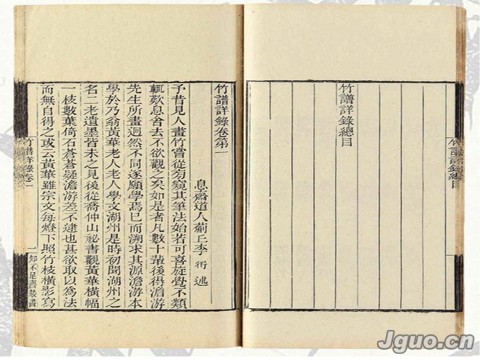 竹譜詳錄總目
竹譜詳錄總目
竹譜詳錄卷第一
息齋道人薊丘李衎述
予昔見人畫竹嘗從旁窺其筆法始若可喜旋覺不類
輒歎息舍去不欲觀之矣如是者凡數十輩後得澹游
先生所畫迥然不同遂願學焉已而溯求其源澹游本
學於乃翁黃華老人老人學文湖州是時初聞湖州之
名二老遺墨皆未之見後從喬仲山祕書觀黃華橫幅
一枝數葉倚石蒼蒼疑澹游差不逮也甚欲取以爲法
而無自得之或云黃華雖宗文每燈下照竹枝模影寫
竹譜詳錄卷一
一知不足齋叢書
Jguo.cn